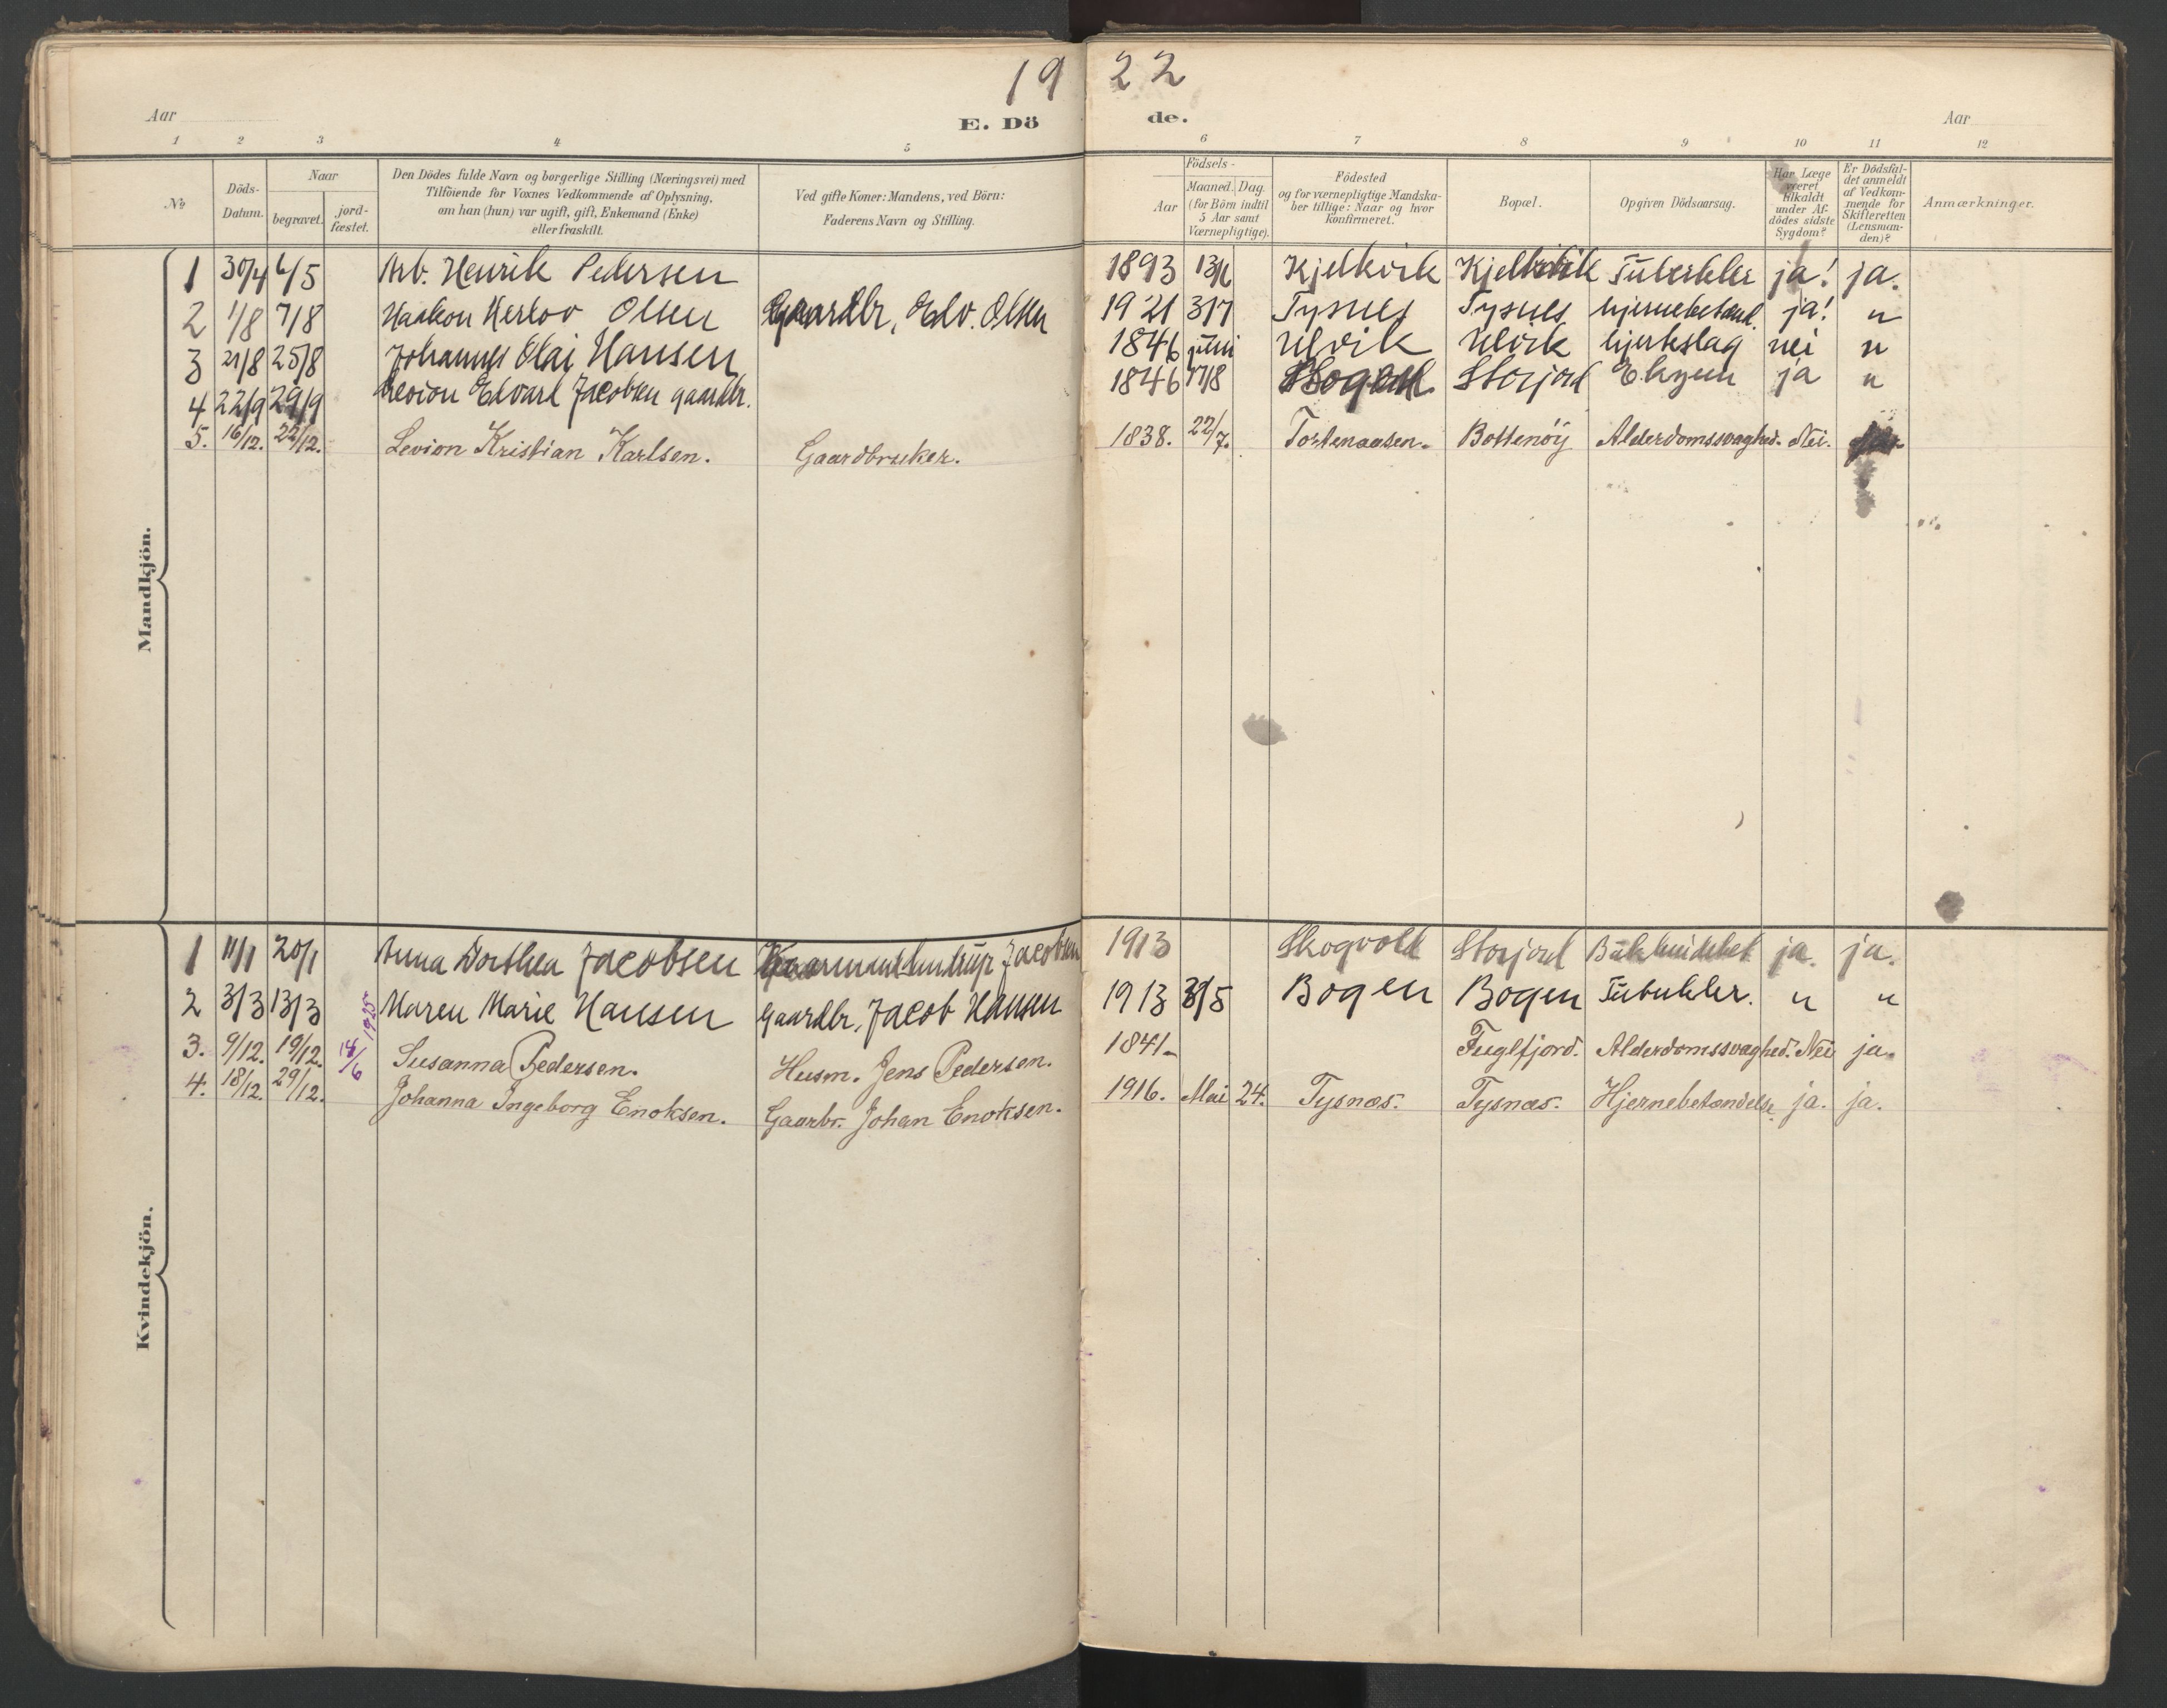 19 22
Aar E. Dö de. Aar
1 2 3 4 5 6 7 8 9 10 11 12
No
Döds-
Datum.
Naar
begravet.
jord-
fæstet.
Den Dödes fulde Navn og borgerlige Stilling (Næringsvei) med
Tilföiende for Voxnes Vedkommende af Oplysning,
om han (hun) var ugift, gift, Enkemand (Enke)
eller fraskilt.
Ved gifte Koner: Mandens, ved Börn:
Faderens Navn og Stilling.
Födsels-
Aar
Maaned. Dag.
(for Börn indtil
5 Aar samt
Værnepligtige).
Födested
og for værnepligtige Mandska-
ber tillige: Naar og hvor
konfirmeret.
Bopæl.
Opgiven Dödsaarsag.
Har Læge
været
tilkaldt
under Af-
dödes sidste
Sygdom?
Er Dödsfal-
det anmeldt
af Vedkom-
mende for
Skifteretten
(Lensman-
den)?
Anmærkninger.
Mandkjön.
1 30/4 6/5 Arb. Henrik Pedersen 1893 13/6 Kjelkvik Kjelkvik Tuberkler ja! ja.
2 1/8 7/8 Haakon Herlov Olsen Gaardbr, Edv. Olsen 1921 3/7 Tysnes Tysnes hjernebetænd. ja! "
3 21/8 25/8 Johannes Olai Hansen 1846 juni Ulvik Ulvik hjerteslag nei "
4 22/9 29/9 Levion Edvard Jacobsen gaardbr. 1846 17/8 Storjord ja "
5. 16/12. 22/12. Levion Kristian Karlsen. Gaardbruker. 1838. 22/7. Tortenaasen. Bottenöy Alderdomssvaghed. Nei.
Kvindekjön.
1 11/1 20/1 Anna Dorthea Jacobsen Jacobsen 1913 Skogvold Storjord ja. ja.
2 3/3 13/3 Maren Marie Hansen Gaardbr, Jacob Hansen 1913 3/5 Bogen Bogen Tuberkler. " "
3. 9/12. 19/12. 14/6 1925 Susanna Pedersen. Husm. Jens Pedersen. 1841. Fuglfjord. Alderdomssvaghed. Nei ja.
4. 18/12. 29/12. Johanna Ingeborg Enoksen. Gaarbr. Johan Enoksen. 1916. Mai 24. Tysnæs. Tysnæs. Hjernebetændelse. ja. ja.